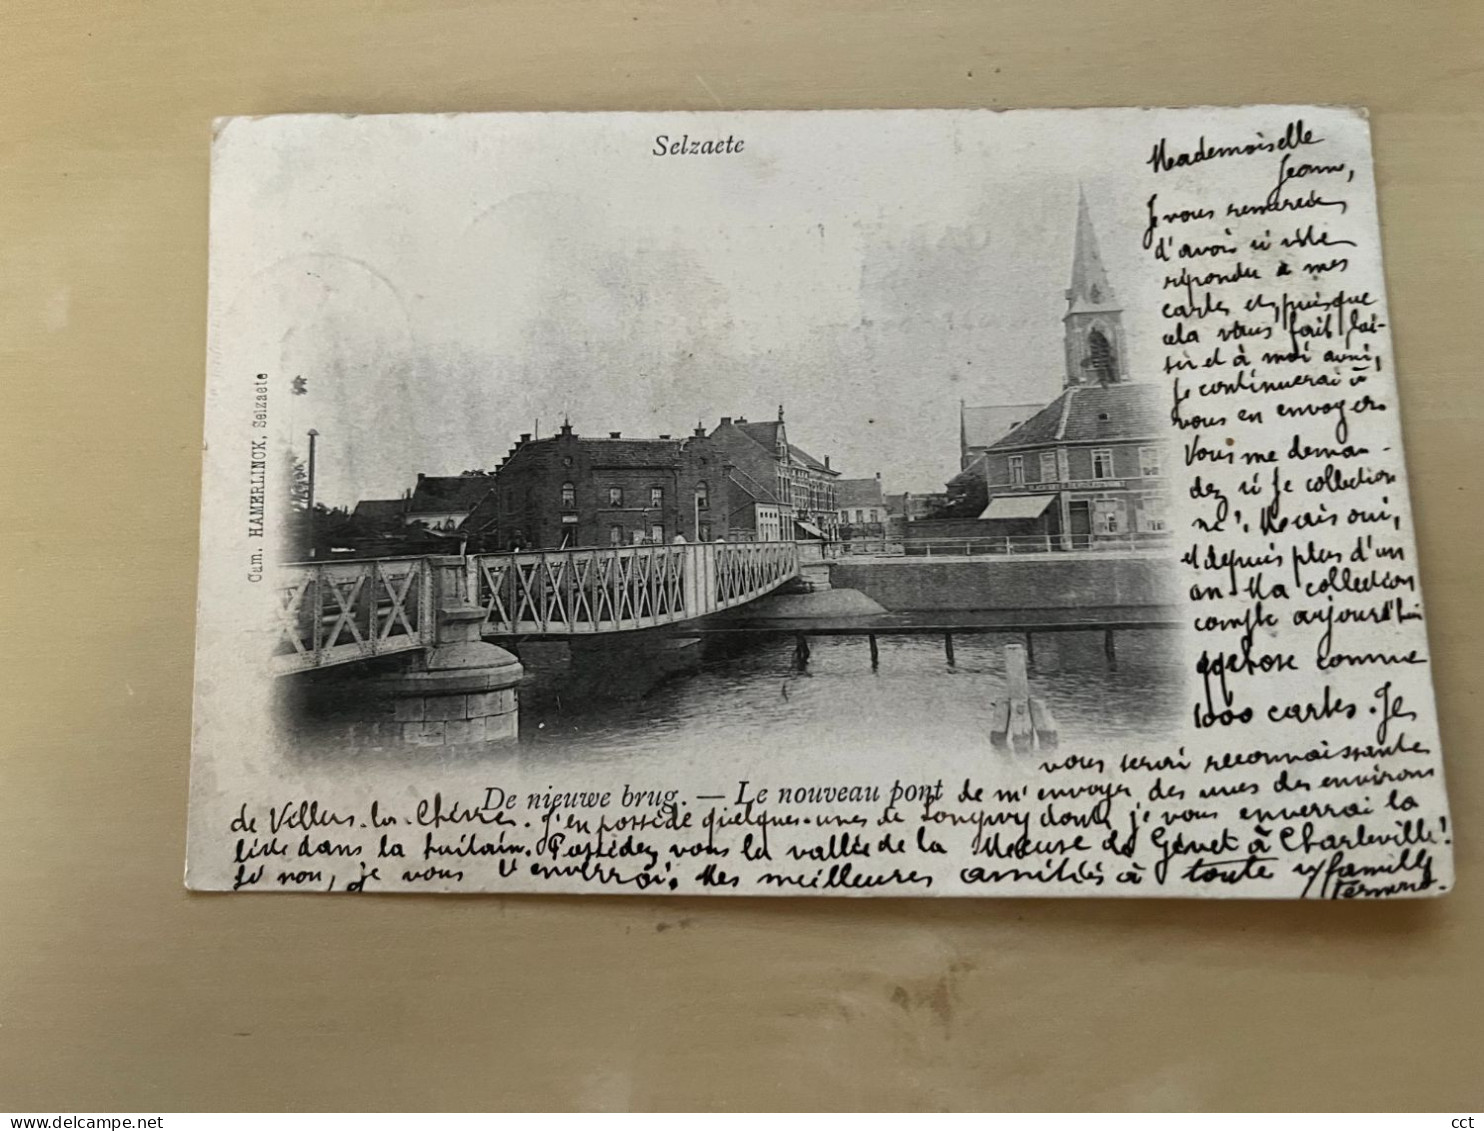 Selzaete
Cum. HAMERLINCK, Selzaete
De nieuwe brug. — Le nouveau pont
Mademoiselle
Jeanne,
Je vous remercie
d'avoir si vite
répondu à mes
cartes et, puisque
cela vous fait plai-
sir et à moi aussi,
je continuerai à
vous en envoyer.
Vous me deman-
dez si je collection
ne! Mais oui,
et depuis plus d'un
an. Ma collection
compte aujourd'hui
quelque comme
1000 cartes. Je
vous serai reconnaissante
de m'envoyer des vues des environs
de Villers-la-Chèvre. J'en possède quelques-unes de Longwy dont je vous enverrai la
liste dans la huitain. Possédez vous la vallée de la Meuse de Givet à Charleville?
Si non, je vous l'enverrai. Mes meilleures amitiés à toute famille
delcampe.net
cct